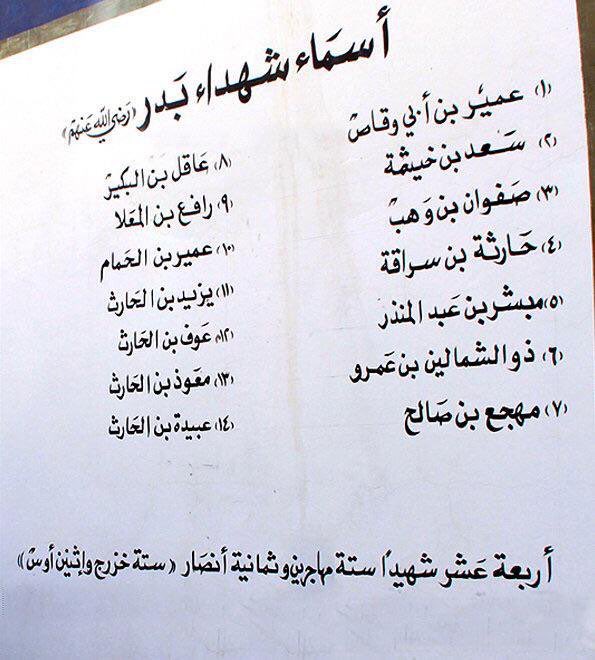 أسماء شهداء بدر (رضي الله عنهم)
(١) عمير بن أبي وقاص
(٢) سعد بن خيثمة
(٣) صفوان بن وهب
(٤) حارثة بن سراقة
(٥) مبشر بن عبد المنذر
(٦) ذو الشمالين بن عمرو
(٧) مهجع بن صالح
(٨) عاقل بن البكير
(٩) رافع بن المعلا
(١٠) عمير بن الحمام
(١١) يزيد بن الحارث
(١٢) عوف بن الحارث
(١٣) معوذ بن الحارث
(١٤) عبيدة بن الحارث
أربعة عشر شهيدًا ستة مهاجرين وثمانية أنصار (ستة خزرج وإثنين أوس)